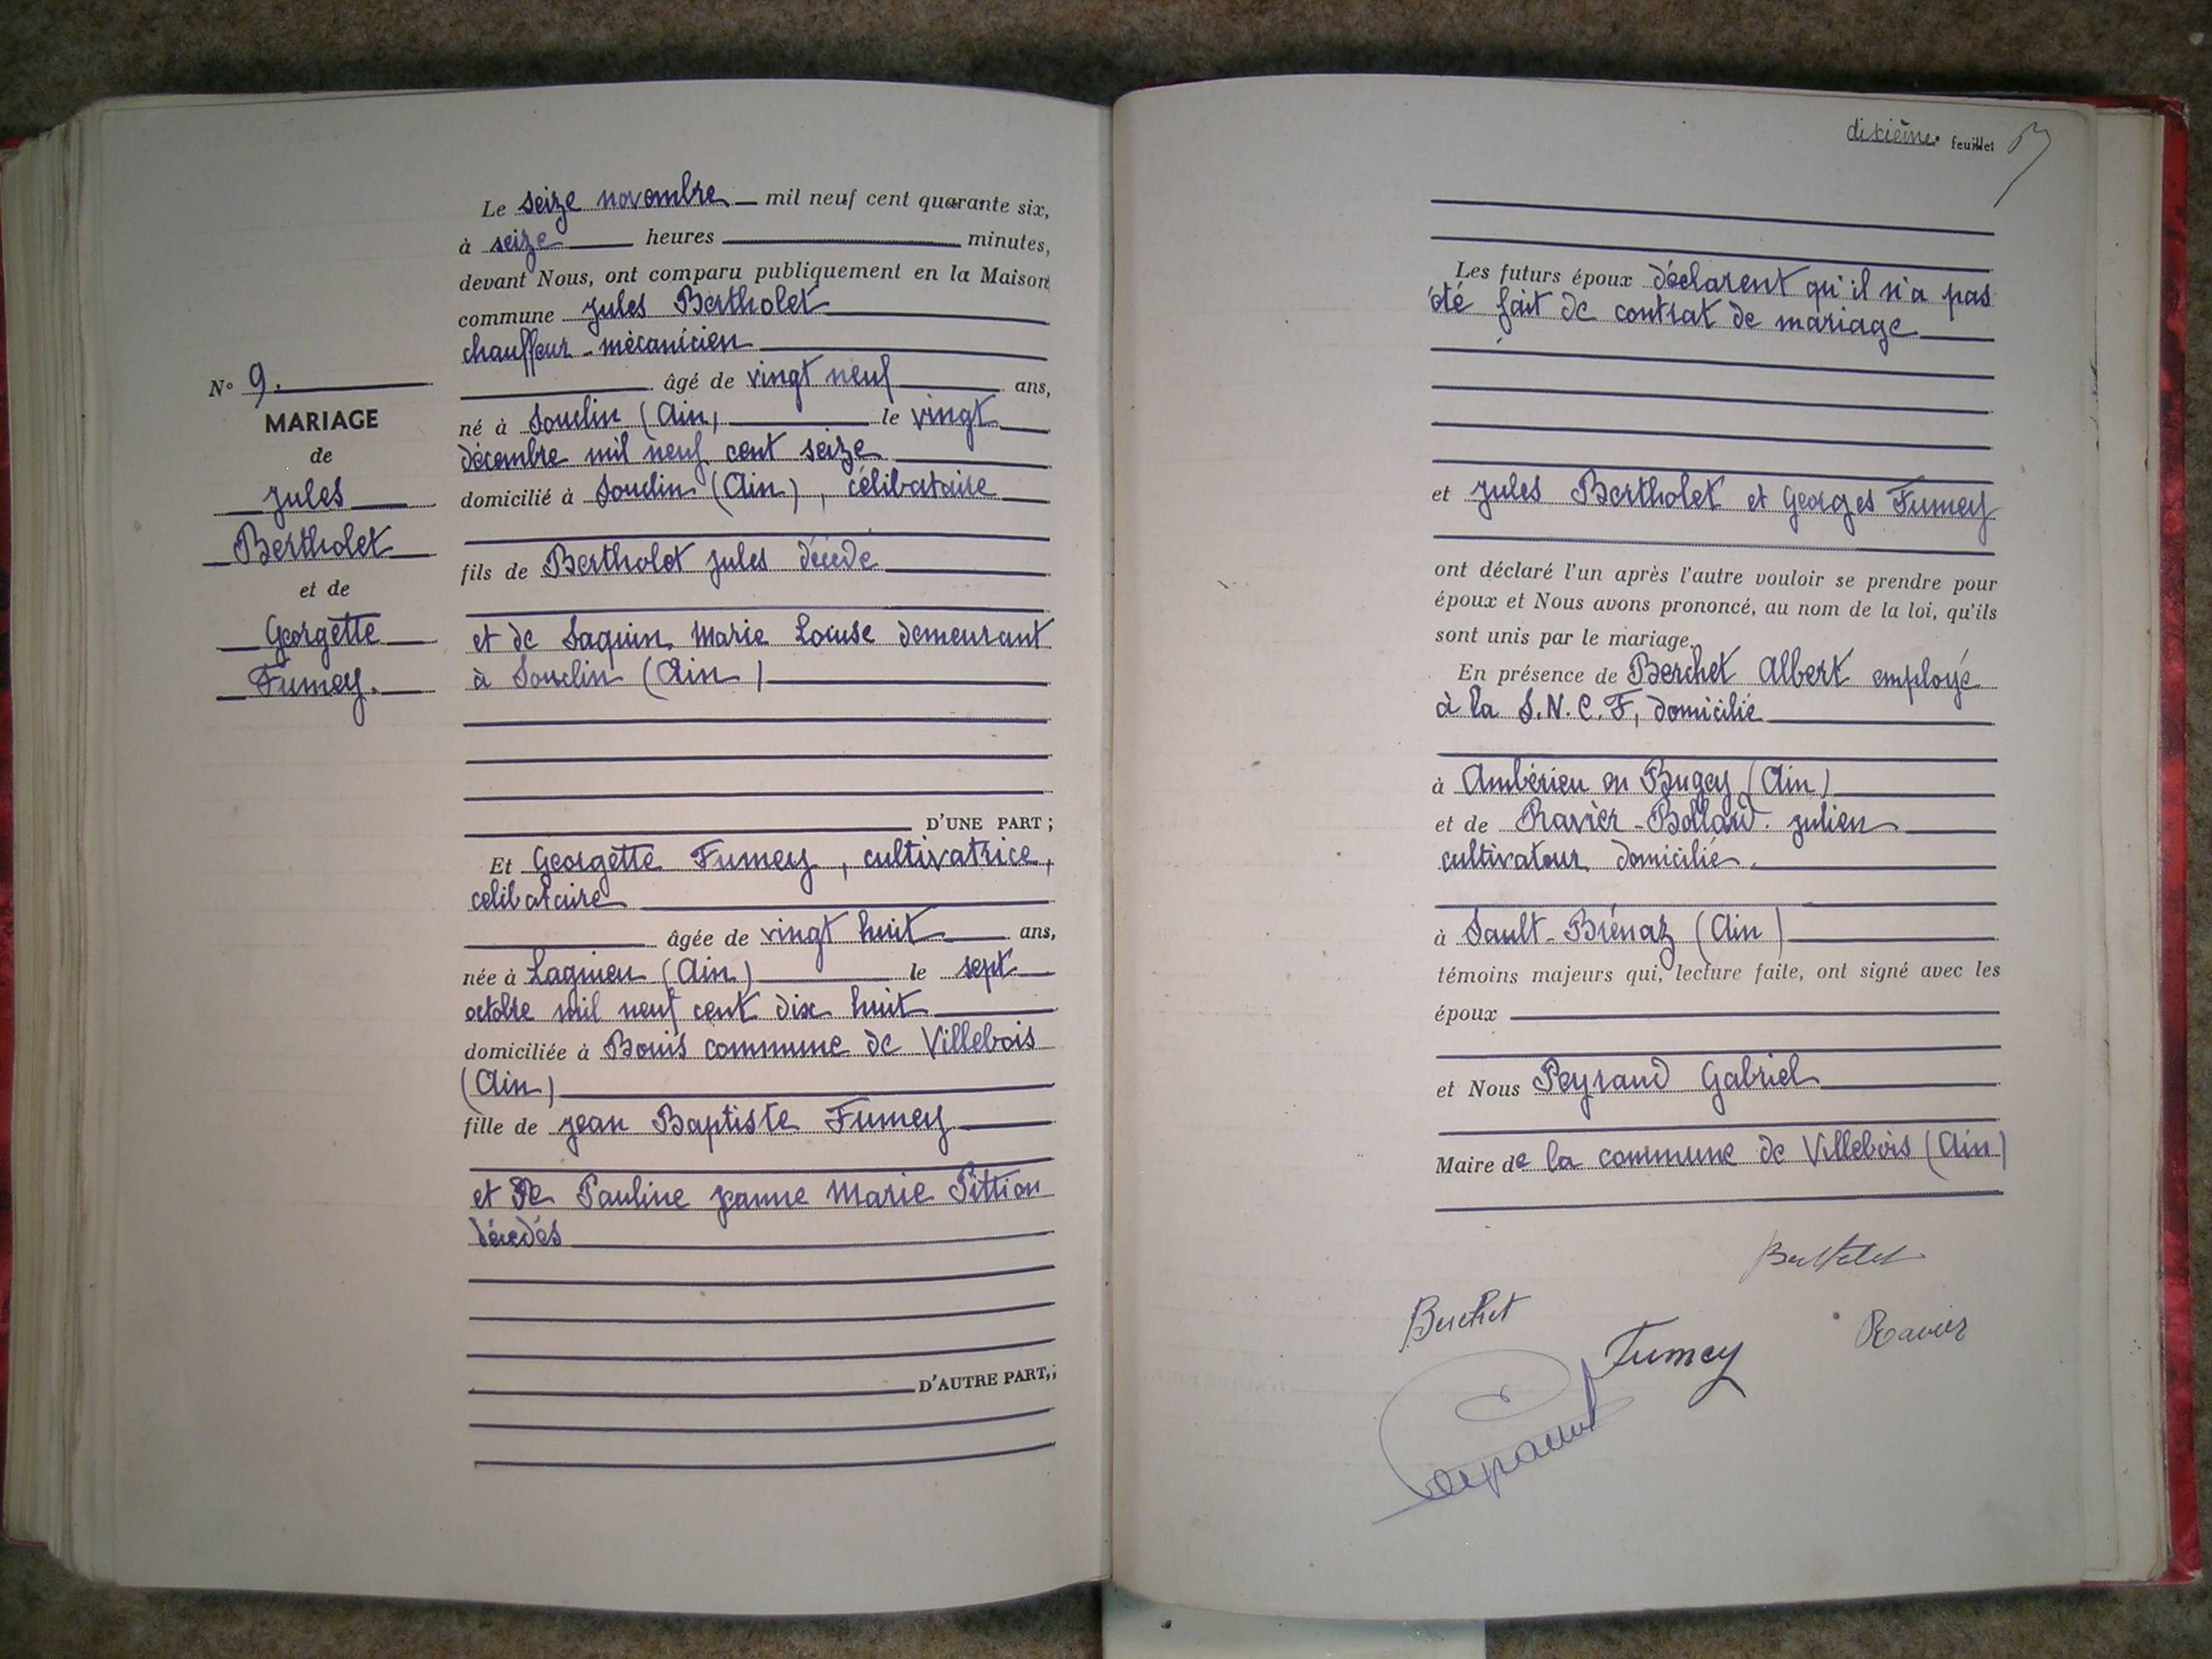 Le seize novembre mil neuf cent quarante six,
à seize heures minutes,
devant Nous, ont comparu publiquement en la Maison
commune Jules Bertholet
chauffeur-mécanicien
âgé de vingt neuf ans,
né à Souclin (Ain) le vingt
décembre mil neuf cent seize
domicilié à Souclin (Ain), célibataire
fils de Bertholet Jules décédé
et de Saquin Marie Louise demeurant
à Souclin (Ain)
D'UNE PART ;
Et Georgette Fumey, cultivatrice,
celibataire
âgée de vingt huit ans,
née à Lagnieu (Ain) le sept
octobre mil neuf cent dix huit
domiciliée à Bouis commune de Villebois
(Ain)
fille de Jean Baptiste Fumey
et de Pauline Jeanne Marie Pittion
décédés
D'AUTRE PART,;
N° 9.
MARIAGE
de
Jules
Bertholet
et de
Georgette
Fumey.
dixième feuillet
Les futurs époux déclarent qu'il n'a pas
été fait de contrat de mariage
et Jules Bertholet et Georges Fumey
ont déclaré l'un après l'autre vouloir se prendre pour
époux et Nous avons prononcé, au nom de la loi, qu'ils
sont unis par le mariage.
En présence de Berchet Albert employé
à la S.N.C.F, domicilié
à Ambérieu en Bugey (Ain)
et de Ravier-Bollard Julien
cultivateur domicilié.
à Sault-Brénaz (Ain)
témoins majeurs qui, lecture faite, ont signé avec les
époux
et Nous Peyraud Gabriel
Maire de la commune de Villebois (Ain)
Bertholet
Berchet
Fumey
Ravier
Peyraud